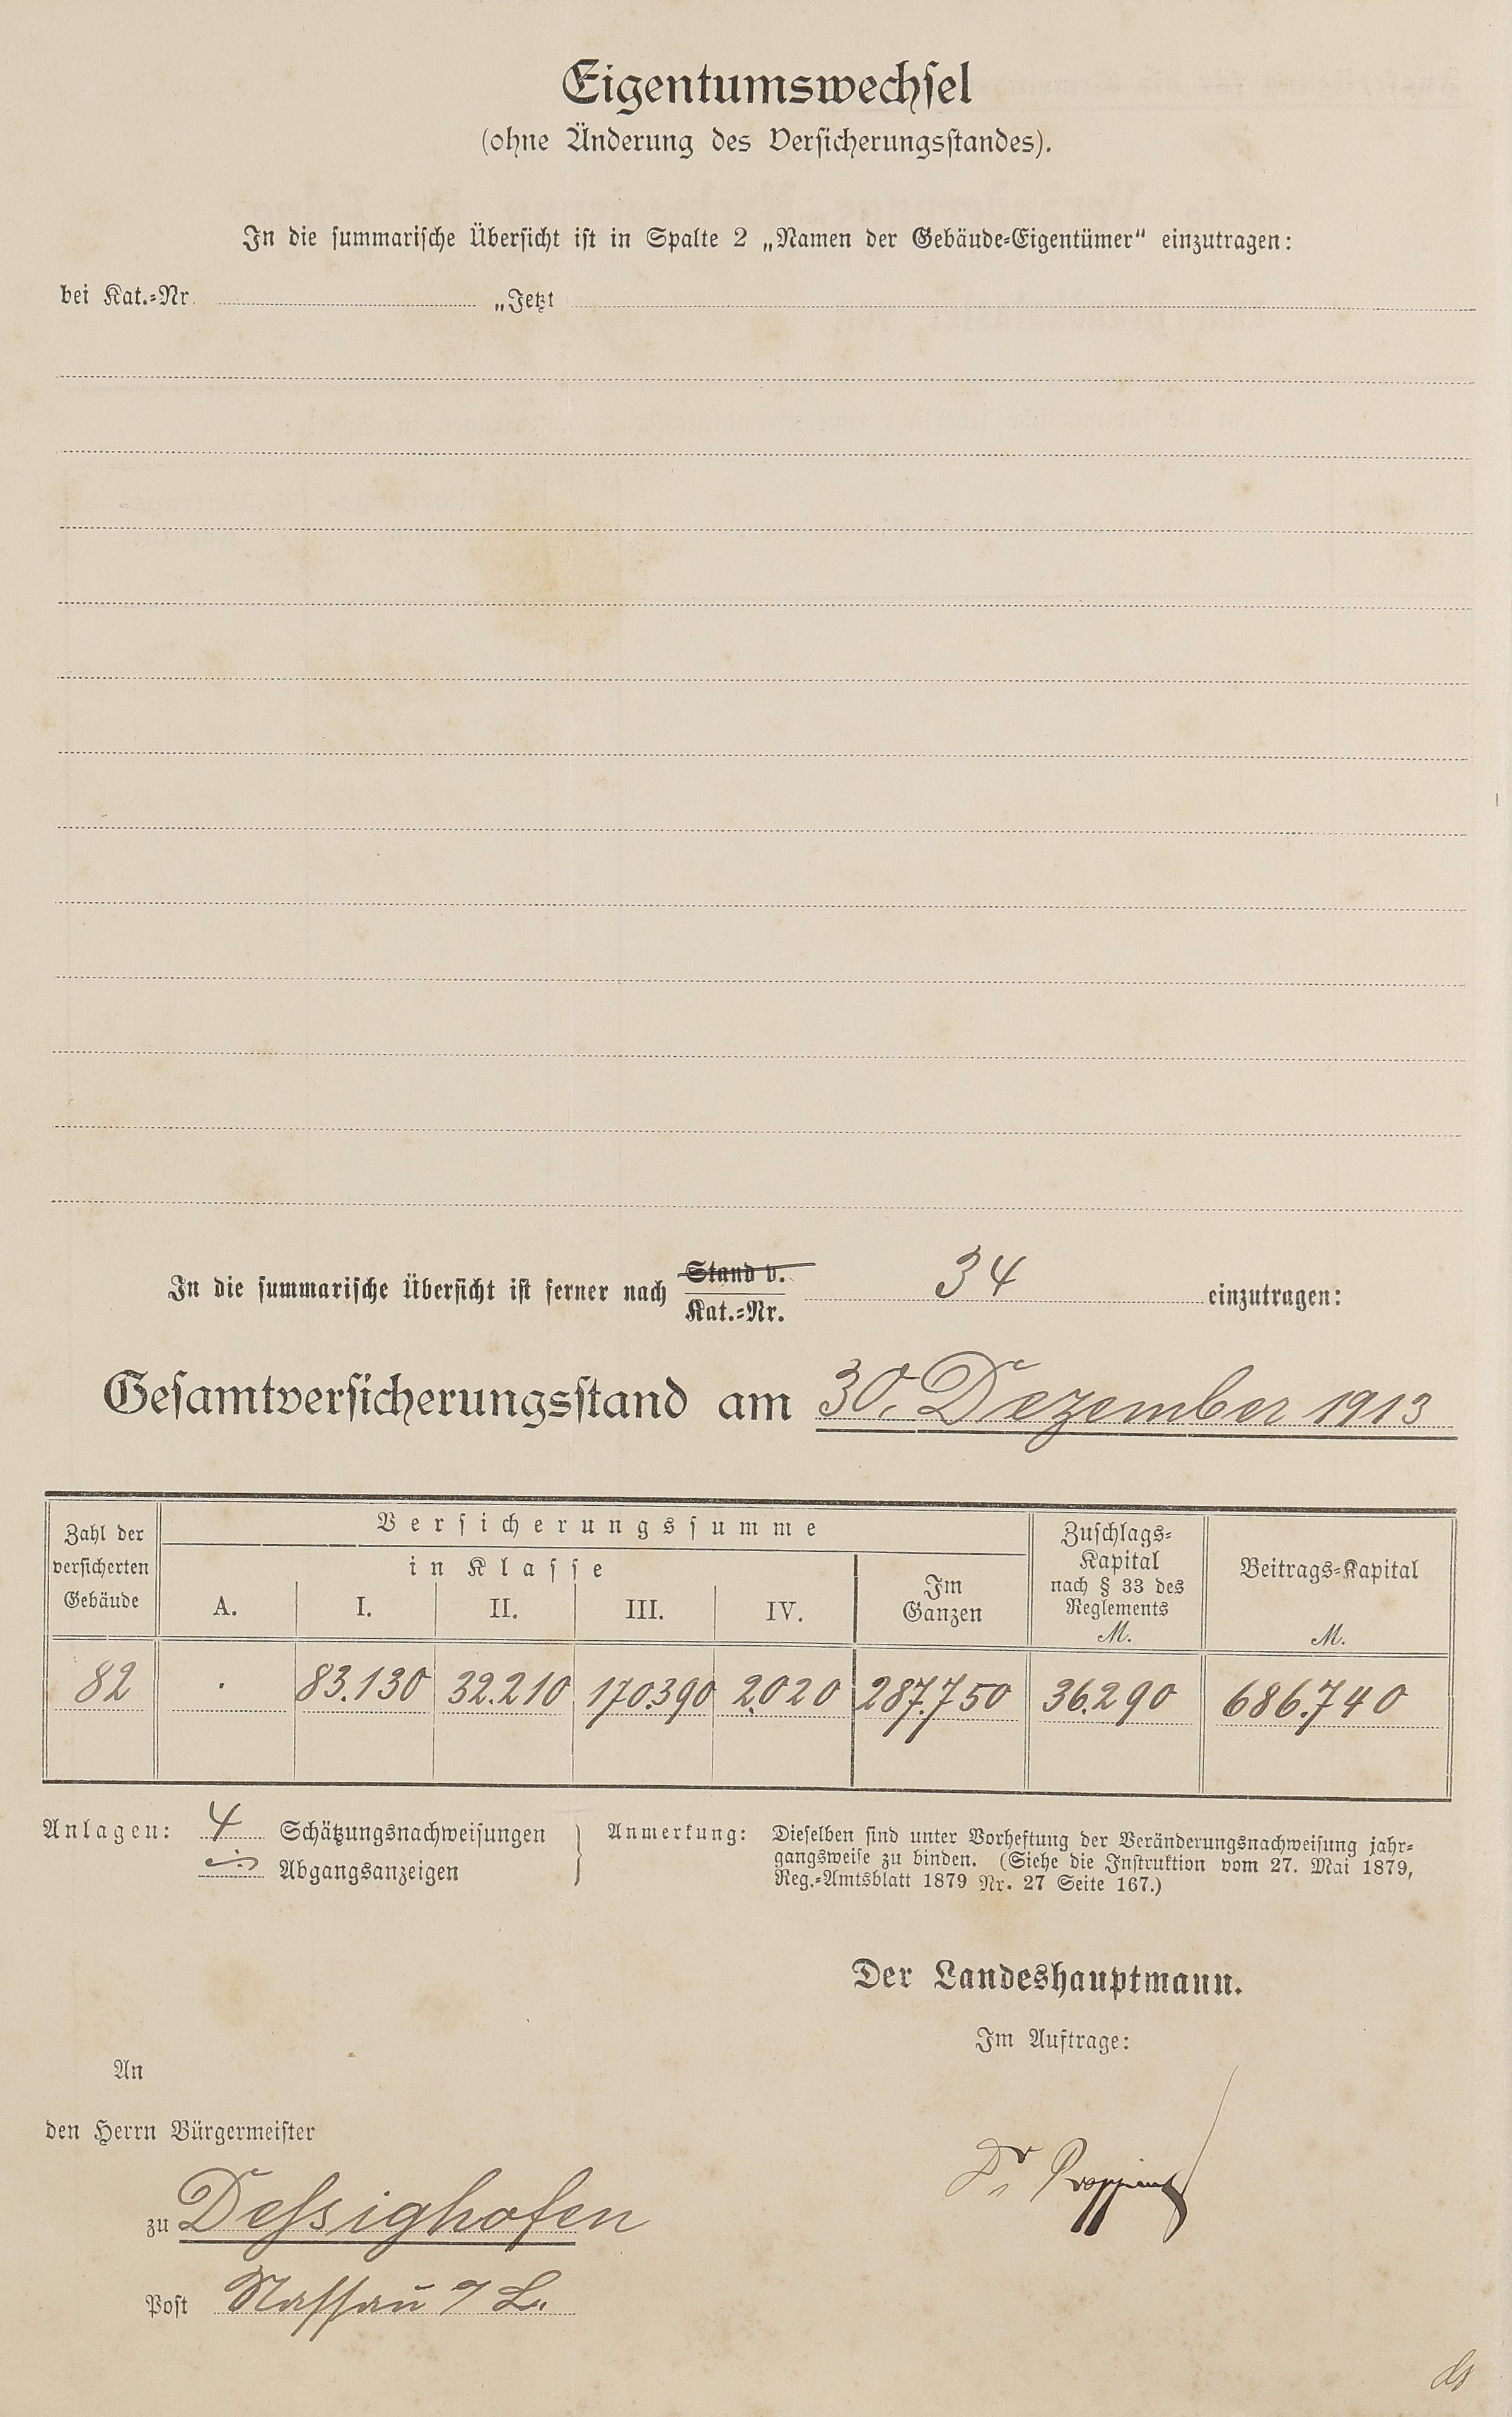 Eigentumswechsel
(ohne Änderung des Versicherungsstandes).
In die summarische Übersicht ist in Spalte 2 „Namen der Gebäude-Eigentümer“ einzutragen:
bei Kat.-Nr. „Jetzt
In die summarische Übersicht ist ferner nach Stand v. Kat.-Nr. 34 einzutragen:
Gesamtversicherungsstand am 30. Dezember 1913
Zahl der versicherten Gebäude
Versicherungssumme
in Klasse
A. I. II. III. IV.
Im Ganzen
Zuschlags-Kapital nach § 33 des Reglements M.
Beitrags-Kapital M.
82 . 83.130 32.210 170.390 2.020 287.750 36.290 686.740
Anlagen: 4 Schätzungsnachweisungen
Abgangsanzeigen
Anmerkung: Dieselben sind unter Vorheftung der Veränderungsnachweisung jahr-
gangsweise zu binden. (Siehe die Instruktion vom 27. Mai 1879,
Reg.-Amtsblatt 1879 Nr. 27 Seite 167.)
Der Landeshauptmann.
Im Auftrage:
Dr
An
den Herrn Bürgermeister
zu Dessighofen
Post Nassau a/L.